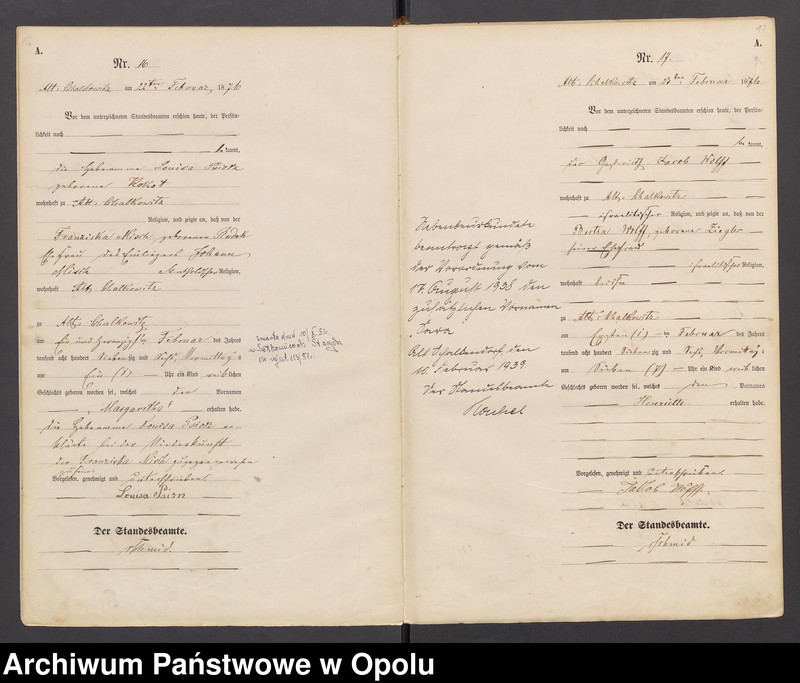 A.
Nr. 16
Alt-Schalkowitz am 22ten Februar 1876
Vor dem unterzeichneten Standesbeamten erschien heute, der Persön-
lichkeit nach
be kannt,
die Hebeamme Louisa
geborene Kokot
wohnhaft zu Alt-Schalkowitz
Religion, und zeigte an, daß von der
Franziska Misch geborenen
Ehefrau des Einliegers Johann
Misch katholischer Religion,
wohnhaft Alt-Schalkowitz
zu Alt-Schalkowitz
am ein und zwanzigsten Februar des Jahres
tausend acht hundert sieben zig und sechs, Vormittags
um Ein (1) Uhr ein Kind weib lichen
Geschlechts geboren worden sei, welches den Vornamen
„Margaretha" erhalten habe.
die Hebeamme Louisa er-
klärte bei der Niederkunft
der Franziska Misch zugegen gewesen
zu sein.
Vorgelesen, genehmigt und unterschrieben
Louisa
Der Standesbeamte.
Schmid.
17
A.
Nr. 17.
Alt-Schalkowitz am 23ten Februar 1876
Vor dem unterzeichneten Standesbeamten erschien heute, der Persön-
lichkeit nach
be kannt,
der Gastwirth Jacob Wolff
wohnhaft zu Alt-Schalkowitz
israelitischer Religion, und zeigte an, daß von der
Bertha Wolff geborene Ziegler
seiner Ehefrau
israelitischer Religion,
wohnhaft bei ihm
zu Alt-Schalkowitz
am Februar des Jahres
tausend acht hundert sieben zig und sechs, Vormittags
um Sieben (7) Uhr ein Kind weib lichen
Geschlechts geboren worden sei, welches den Vornamen
Henriette erhalten habe.
Vorgelesen, genehmigt und unterschrieben
Jakob Wolff.
Der Standesbeamte.
Schmid
Nebenbeurkundete
beantragt gemäß
der Verordnung vom
17. August 1938 den
zusätzlichen Vornamen
„Sara"
Alt Schalkendorf, den
10. Februar 1939
Der Standesbeamte
Archiwum Państwowe w Opolu